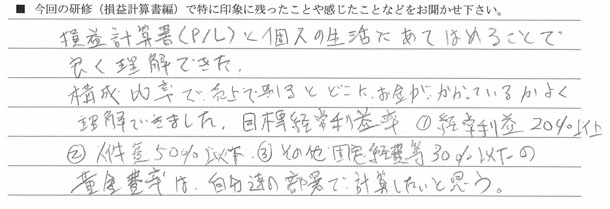 ■ 今回の研修（損益計算書編）で特に印象に残ったことや感じたことなどをお聞かせ下さい。
損益計算書(P/L)と個人の生活にあてはめることで
良く理解できた。
構成比率で、売上で割るとどこにお金がかかっているかよく
理解できました。目標経常利益率 ①経常利益20%以上
②人件費50%以下 ③その他固定経費等30%以下の
黄金比率は、自分達の部署で計算したいと思う。